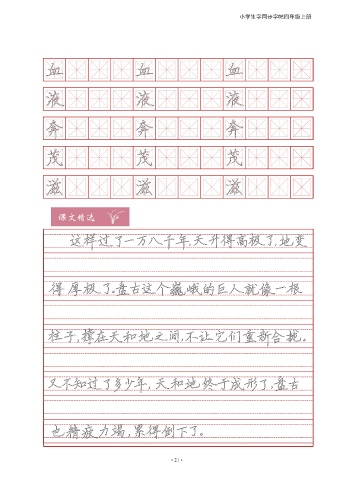 小学生字同步字帖四年级上册
血 血 血
液 液 液
奔 奔 奔
茂 茂 茂
滋 滋 滋
课文精选
这样过了一万八千年,天升得高极了,地变
得厚极了。盘古这个巍峨的巨人就像一根
柱子,撑在天和地之间,不让它们重新合拢。
又不知过了多少年,天和地终于成形了,盘古
也精疲力竭,累得倒下了。
·21·